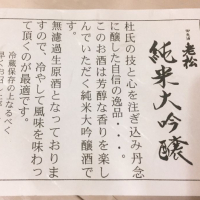 老松
純米大吟醸
杜氏の技と心を注ぎ込み丹念
に醸した自信の逸品・・・。
このお酒は芳醇な香りを楽し
んでいただく純米大吟醸酒で
す。
無濾過生原酒となっておりま
すので、冷やして風味を味わっ
て頂くのが最適です。
冷蔵保存の上なるべく